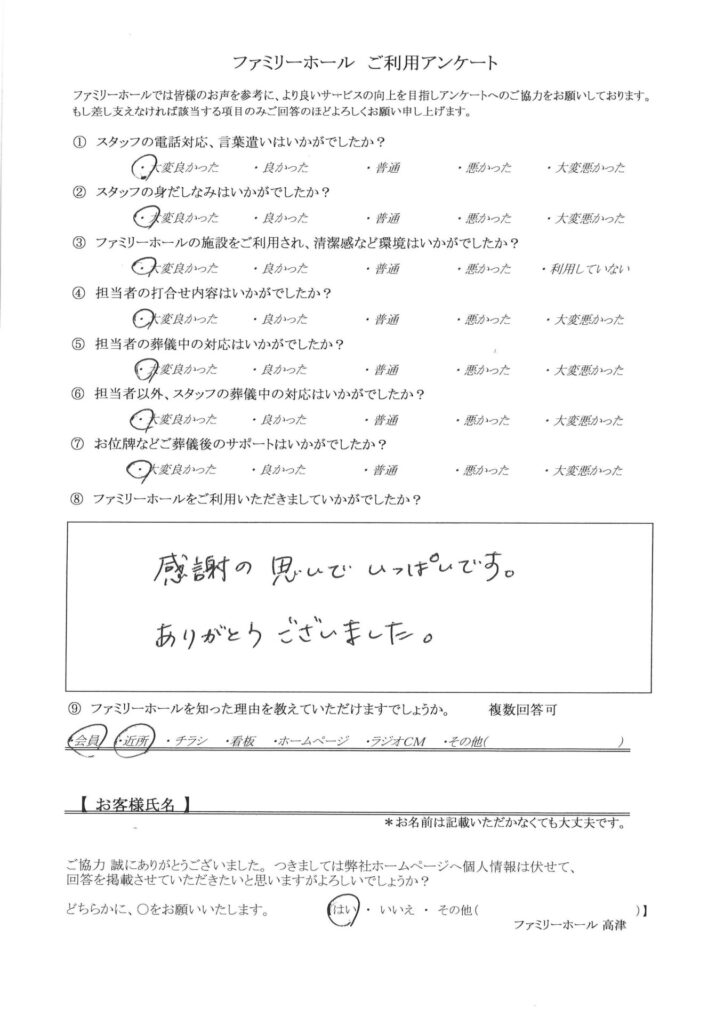 ファミリーホール　ご利用アンケート
ファミリーホールでは皆様のお声を参考に、より良いサービスの向上を目指しアンケートへのご協力をお願いしております。
もし差し支えなければ該当する項目のみご回答のほどよろしくお願い申し上げます。
① スタッフの電話対応、言葉遣いはいかがでしたか？
・大変良かった ・良かった ・普通 ・悪かった ・大変悪かった
② スタッフの身だしなみはいかがでしたか？
・大変良かった ・良かった ・普通 ・悪かった ・大変悪かった
③ ファミリーホールの施設をご利用され、清潔感など環境はいかがでしたか？
・大変良かった ・良かった ・普通 ・悪かった ・利用していない
④ 担当者の打合せ内容はいかがでしたか？
・大変良かった ・良かった ・普通 ・悪かった ・大変悪かった
⑤ 担当者の葬儀中の対応はいかがでしたか？
・大変良かった ・良かった ・普通 ・悪かった ・大変悪かった
⑥ 担当者以外、スタッフの葬儀中の対応はいかがでしたか？
・大変良かった ・良かった ・普通 ・悪かった ・大変悪かった
⑦ お位牌などご葬儀後のサポートはいかがでしたか？
・大変良かった ・良かった ・普通 ・悪かった ・大変悪かった
⑧ ファミリーホールをご利用いただきましていかがでしたか？
感謝の思いでいっぱいです。
ありがとうございました。
⑨ ファミリーホールを知った理由を教えていただけますでしょうか。　複数回答可
・会員 ・近所 ・チラシ ・看板 ・ホームページ ・ラジオCM ・その他( )
【 お客様氏名 】
＊お名前は記載いただかなくても大丈夫です。
ご協力 誠にありがとうございました。つきましては弊社ホームページへ個人情報は伏せて、
回答を掲載させていただきたいと思いますがよろしいでしょうか？
どちらかに、〇をお願いいたします。 【はい ・ いいえ ・ その他( )】
ファミリーホール 高津